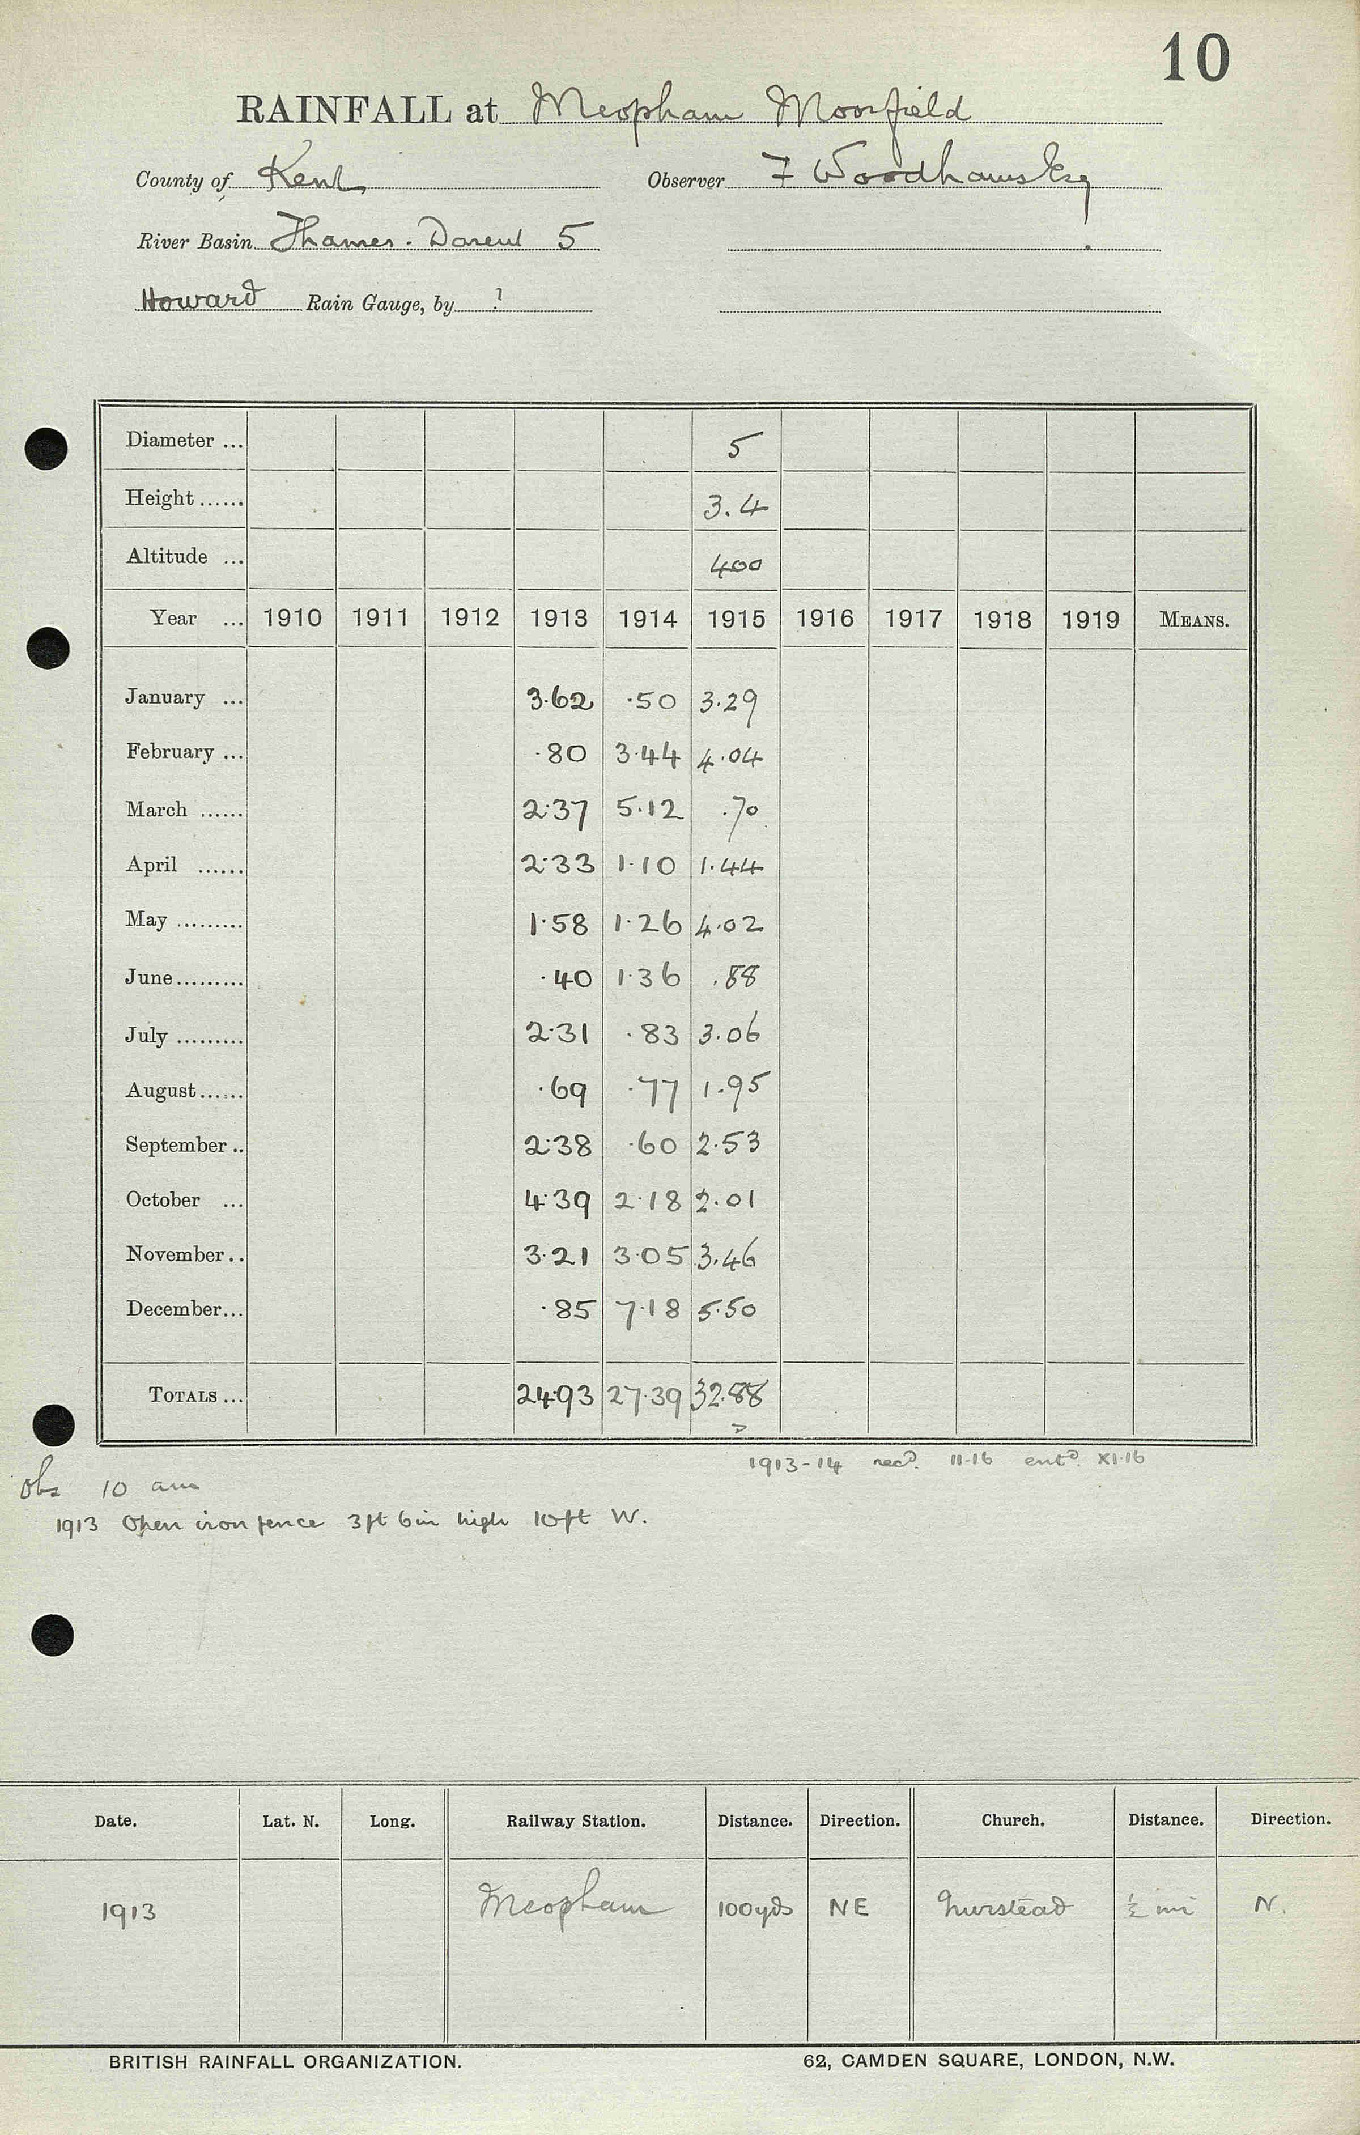 10
RAINFALL at Meopham Moorfield
County of Kent Observer F Woodhams Esq
River Basin Thames. Darent 5
Howard Rain Gauge, by ?
Diameter ... 5
Height ...... 3.4
Altitude ... 400
Year ... 1910 1911 1912 1913 1914 1915 1916 1917 1918 1919 MEANS.
January ... 3.62 .50 3.29
February ... .80 3.44 4.04
March ...... 2.37 5.12 .70
April ...... 2.33 1.10 1.44
May ......... 1.58 1.26 4.02
June......... .40 1.36 .88
July ......... 2.31 .83 3.06
August ...... .69 .77 1.95
September .. 2.38 .60 2.53
October ... 4.39 2.18 2.01
November .. 3.21 3.05 3.46
December... .85 7.18 5.50
TOTALS ... 24.93 27.39 32.88
1913-14 recd. 11-16 entd. XI.16
Obs 10 am
1913 Open iron fence 3ft 6in high 10ft W.
Date. Lat. N. Long. Railway Station. Distance. Direction. Church. Distance. Direction.
1913 Meopham 100yds NE Nurstead ½ mi N.
BRITISH RAINFALL ORGANIZATION. 62, CAMDEN SQUARE, LONDON, N.W.